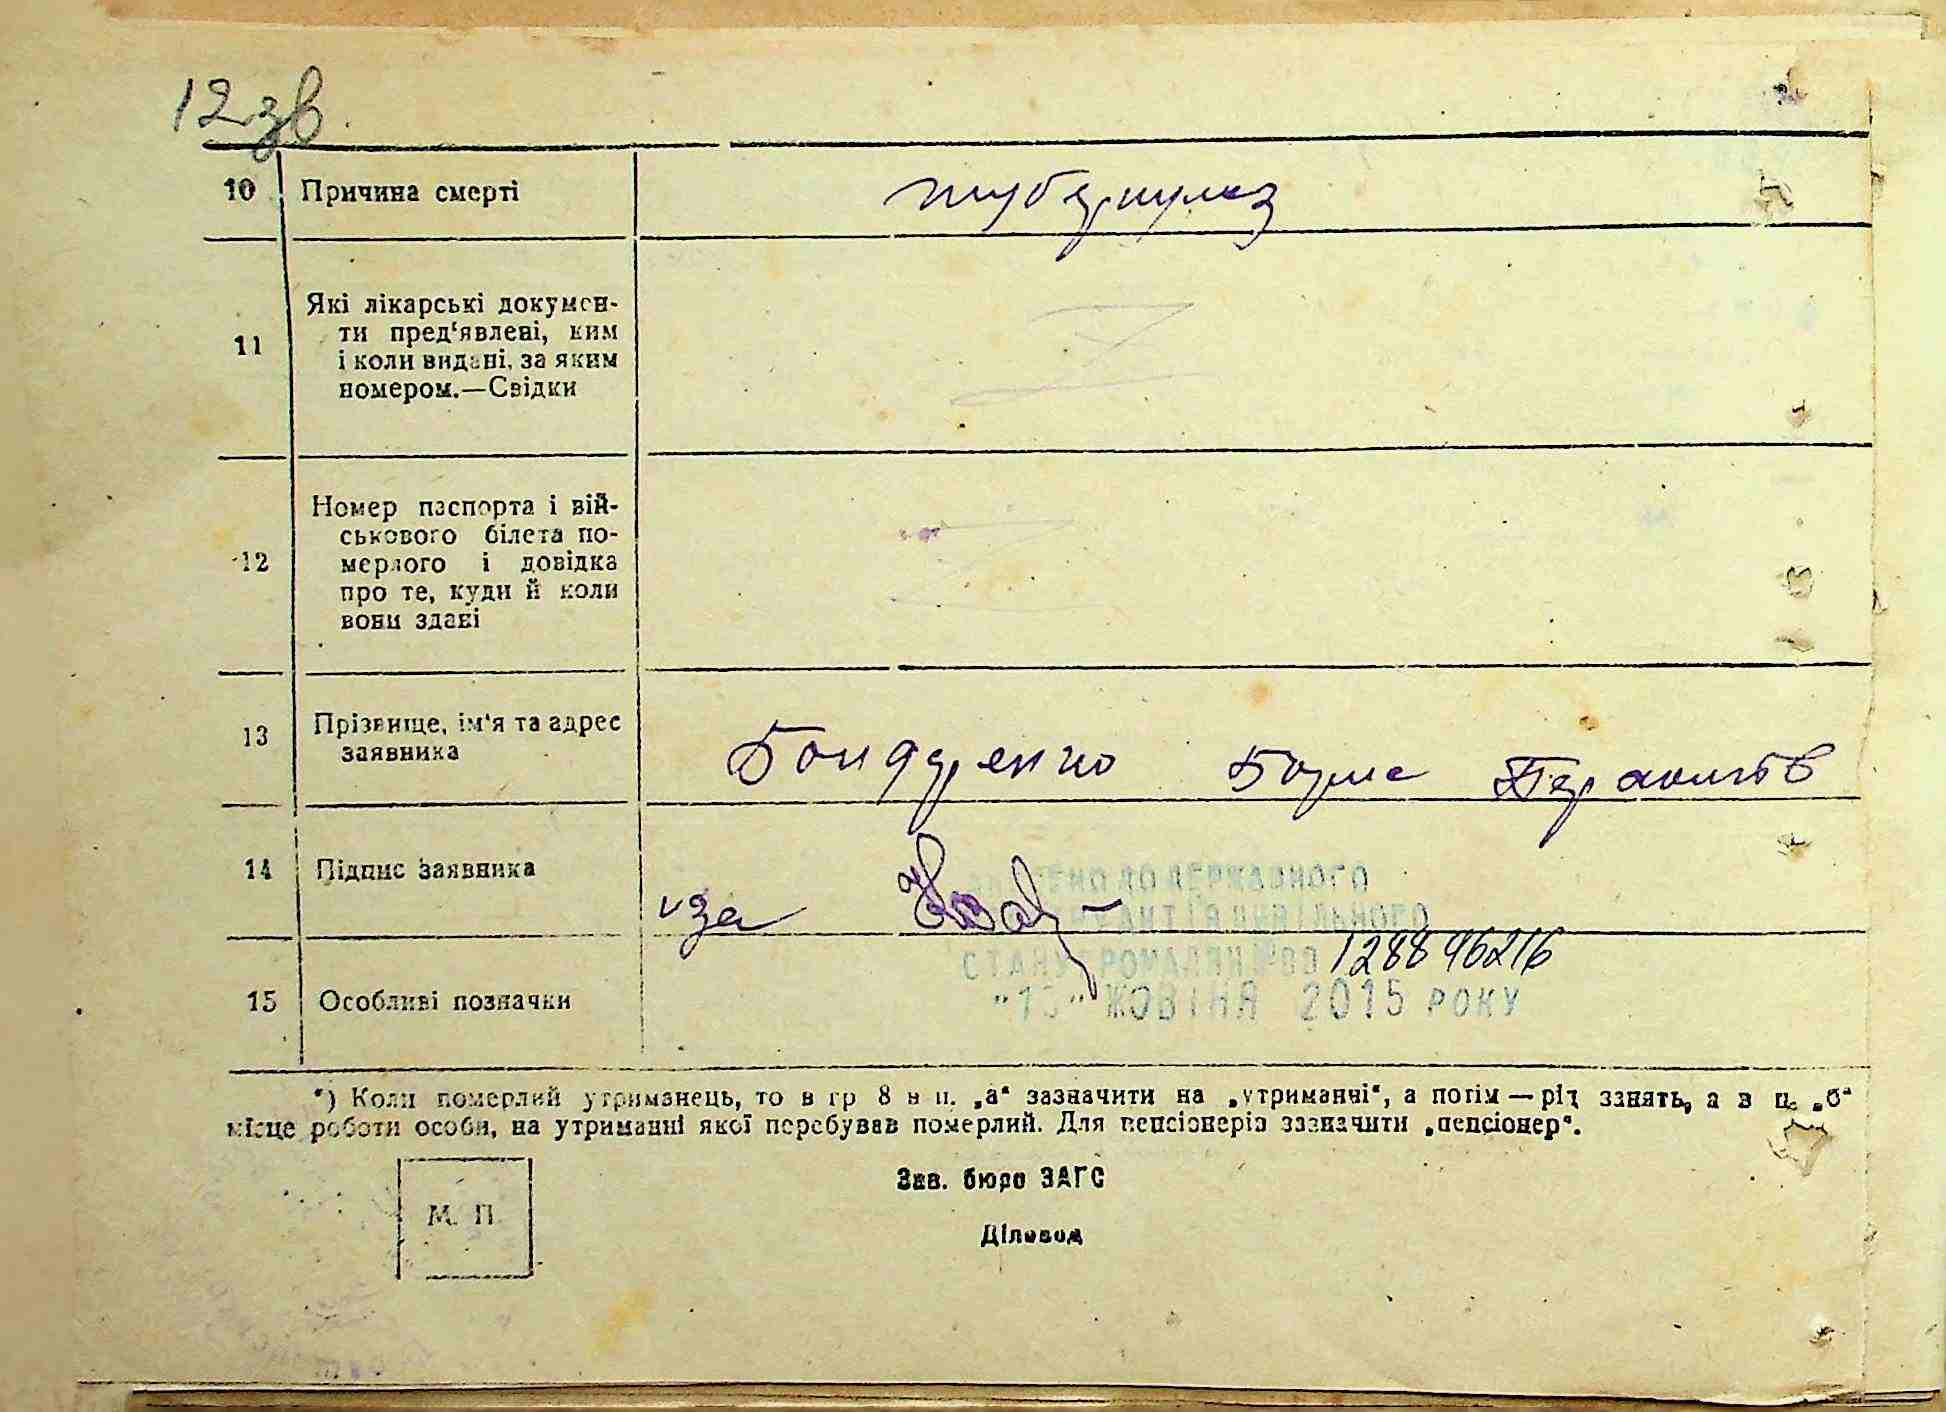 12 зв.
10 Причина смерті туберкульоз
11 Які лікарські документи пред‘явлені, ким
і коли видані, за яким
номером.—Свідки
12 Номер паспорта і військового
білета померлого
і довідка
про те, куди й коли
вони здані
13 Прізвище, ім‘я та адрес
заявника
Бондаренко Борис
14 Підпис заявника
за
ДО ДЕРЖАВНОГО
ЦИВІЛЬНОГО
СТАНУ ГРОМАДЯН №00 128896216
15 Особливі позначки
ЖОВТНЯ 2015 РОКУ
*) Коли померлий утриманець, то в гр 8 в п. „а“ зазначити на „утриманні“, а потім — рід занять, а в п. „б“
місце роботи особи, на утриманні якої перебував померлий. Для пенсіонерів зазначити „пенсіонер“.
Зав. бюро ЗАГС
М. П.
Діловод